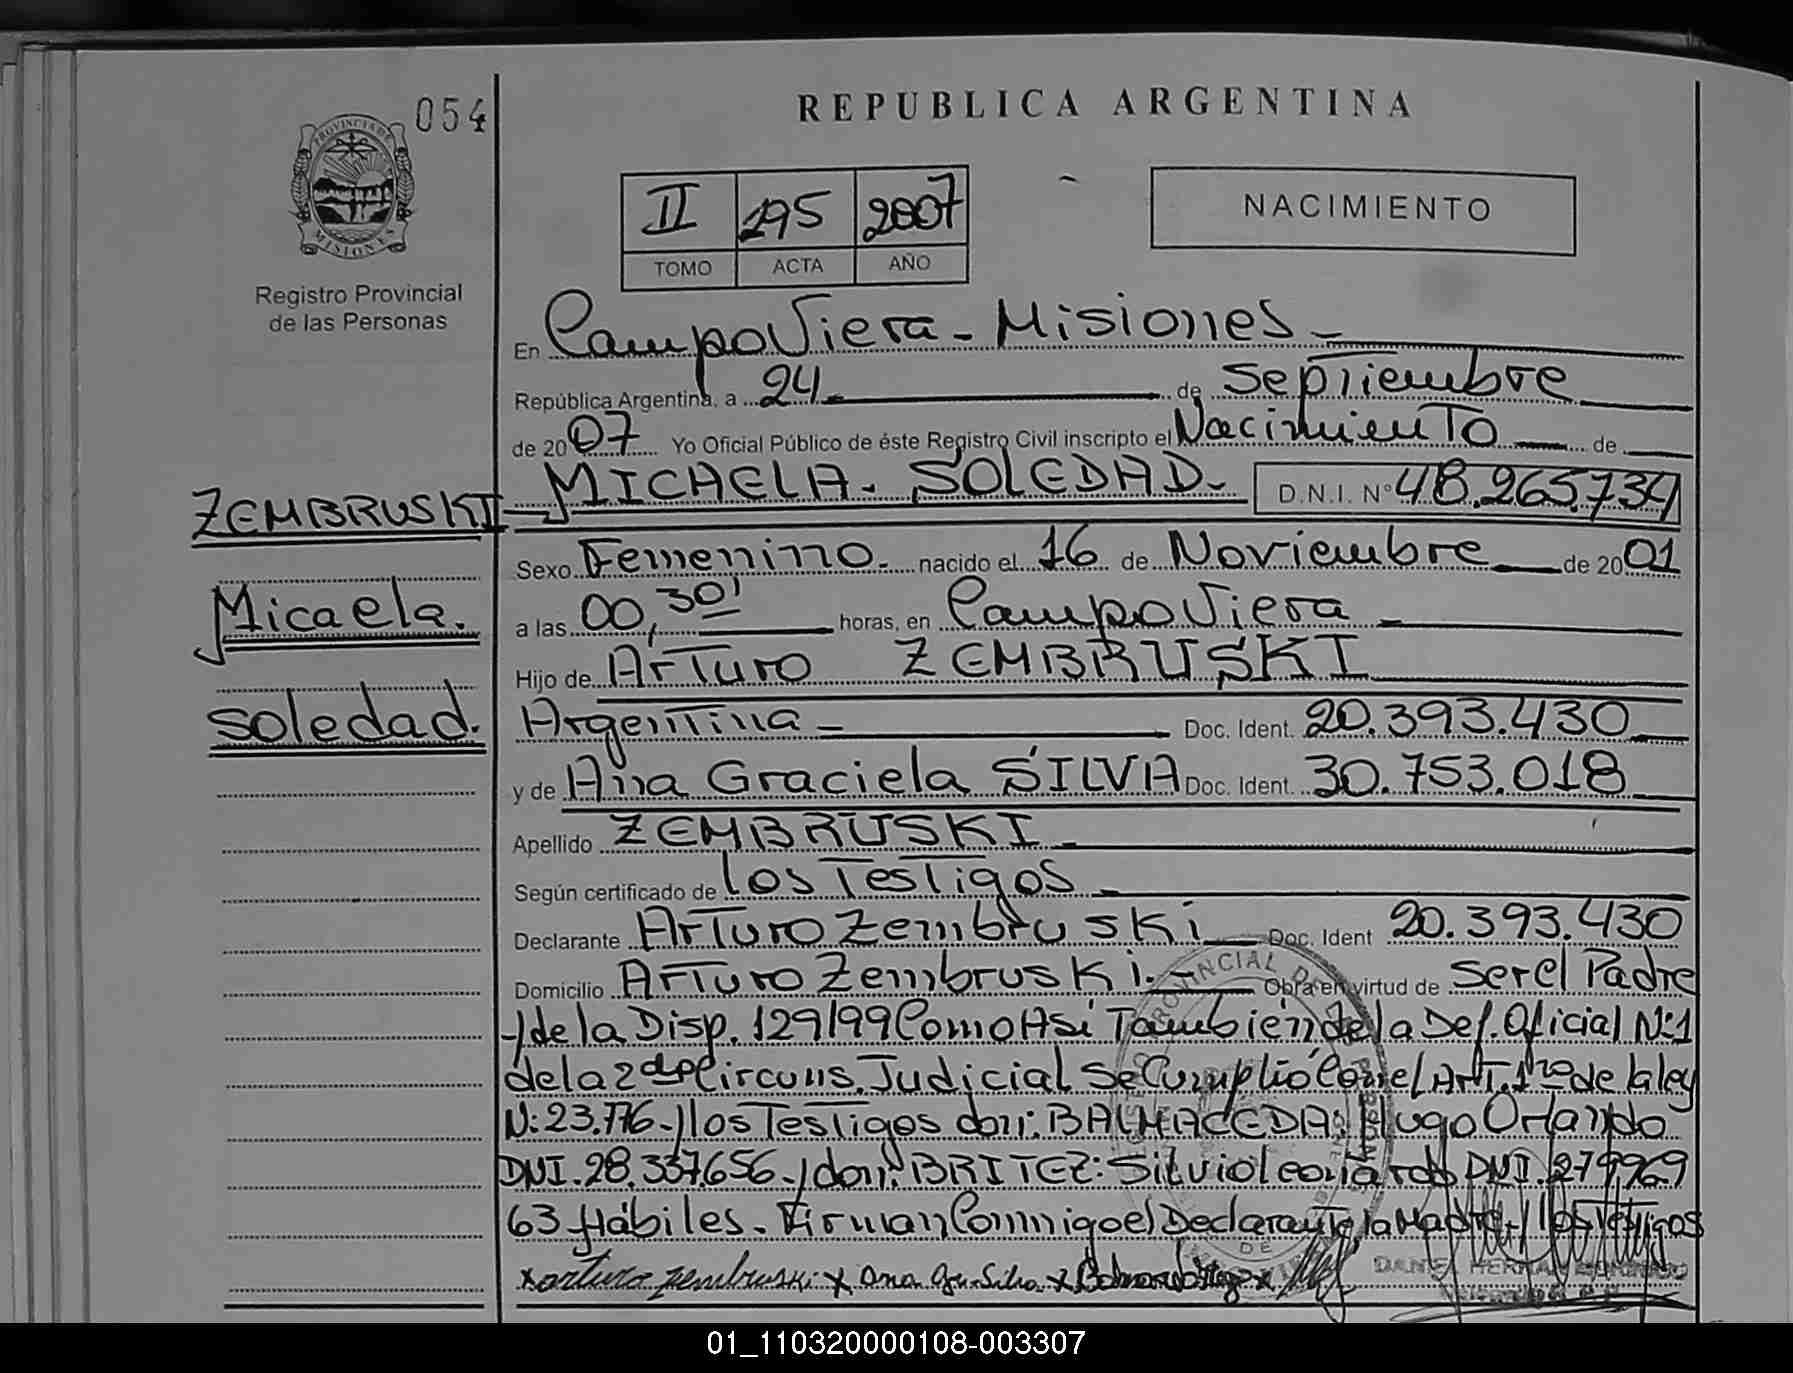 054
REPUBLICA ARGENTINA
PROVINCIA DE
MISIONES
II 295 2007
TOMO ACTA AÑO
NACIMIENTO
Registro Provincial
de las Personas
En Campo Viera - Misiones -
República Argentina, a 24 de Septiembre
de 2007 Yo Oficial Público de éste Registro Civil inscripto el Nacimiento de
ZEMBRUSKI MICAELA. SOLEDAD. D.N.I. Nº 48.265.734
Sexo Femenino. nacido el 16 de Noviembre de 2001
Micaela. a las 00,30' horas, en Campo Viera
Hijo de Arturo ZEMBRUSKI
Soledad. Argentina Doc. Ident. 20.393.430
y de Ana Graciela SILVA Doc. Ident. 30.753.018
Apellido ZEMBRUSKI
Según certificado de los Testigos
Declarante Arturo Zembruski Doc. Ident 20.393.430
Domicilio Arturo Zembruski. Obra en virtud de Ser el Padre
y de la Disp. 129/99 Como Así También de la Def. Oficial N:1
de la 2da Circuns. Judicial Se Cumplió Con el Art. 1ro de la ley
N: 23.776 - y los Testigos don: BALMACEDA: Hugo Orlando
DNI. 28.337.656 - y don: BRITEZ: Silvio leonardo DNI. 279969
63 Hábiles. Firman Conmigo el Declarante la Madre y los Testigos
x arturo zembruski x ana Silva x
01_110320000108-003307